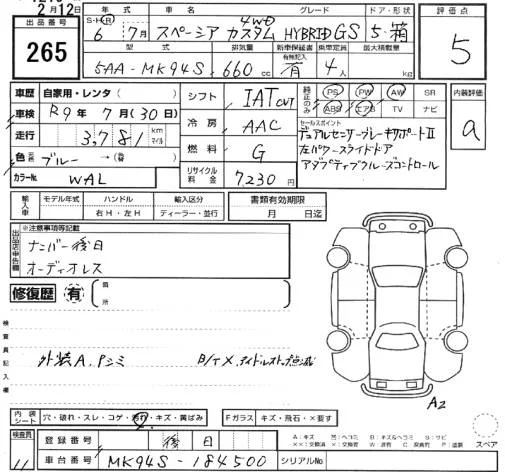 2月12日
出品番号
265
年式 車名 グレード ドア・形状
S・H・R 6 7月 スペーシア カスタム 4WD HYBRID GS 5・箱
型式 排気量 新車保証書 乗車定員 最大積載量
5AA-MK94S 660 cc 有無記入 有 4人 kg
評価点
5
内装評価
a
車歴 自家用・レンタ
車検 R9年 7月(30日)
走行 3,781 km マイル
色 元色 ブルー → (替)
カラーNo. WAL
シフト IAT CVT
冷房 AAC
燃料 G
リサイクル料金 7,230円
純正のみ PS PW AW SR
ABS エアB TV ナビ
セールスポイント
デュアルセンサーブレーキサポートⅡ
左パワースライドドア
アダプティブクルーズコントロール
輸入車 モデル年式 ハンドル 輸入区分 書類有効期限
右H・左H ディーラー・並行 月 日迄
出品店申告欄
※注意事項等記載
ナンバー後日
オーディオレス
修復歴 有 箇所
検査員記入欄
外装A.Pシミ B/TX.アイドルストップ点滅
A2
内装シート 穴・破れ・スレ・コゲ・汚れ・キズ・黄ばみ Fガラス キズ・飛石・×要す
検査員 11
登録番号 後日
車台番号 MK94S-184500 シリアルNo.
スペア